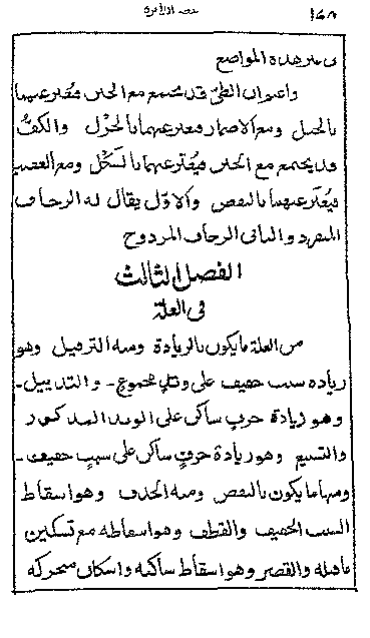 ١٤٨
فى غير هذه المواضع
واعلم ان الطىّ قد يجتمع مع الخبن فيُعَبّر عنهما
بالخبل ومع الاضمار فيعبر عنهما بالخزل والكفّ
قد يجتمع مع الخبن فيُعَبّر عنهما بالشكل ومع العصب
فيُعَبّر عنهما بالنقص والاوّل يقال له الزحاف
المنفرد والثانى الزحاف المزدوج
الفصل الثالث
فى العلة
من العلة ما يكون بالزيادة ومنه الترفيل وهو
زيادة سبب خفيف على وتدٍ مجموعٍ - والتذييل -
وهو زيادة حرف ساكن على الوتد المذكور
والتسبيغ وهو زيادة حرفٍ ساكن على سببٍ خفيف -
ومنها ما يكون بالنقص ومنه الحذف وهو اسقاط
السبب الخفيف والقطف وهو اسقاطه مع تسكين
ما قبله والقصر وهو اسقاط ساكنه واسكان متحركه